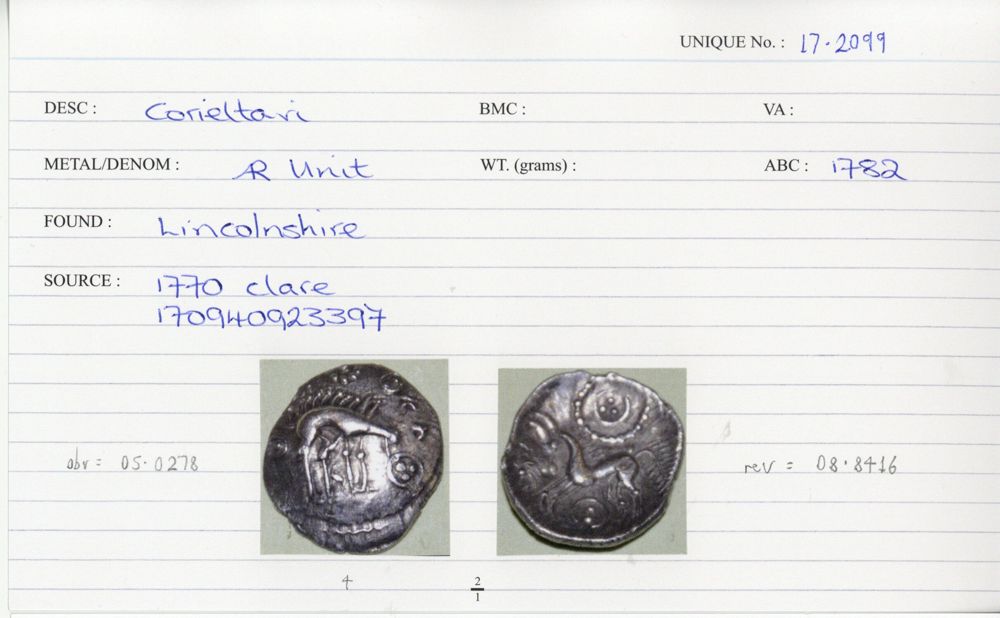 UNIQUE No. : 17.2099
DESC : Corieltavi BMC : VA :
METAL/DENOM : AR Unit WT. (grams) : ABC : 1782
FOUND : Lincolnshire
SOURCE : 1770 clare
170940923397
obv = 05.0278 rev = 08.8416
4 2/1